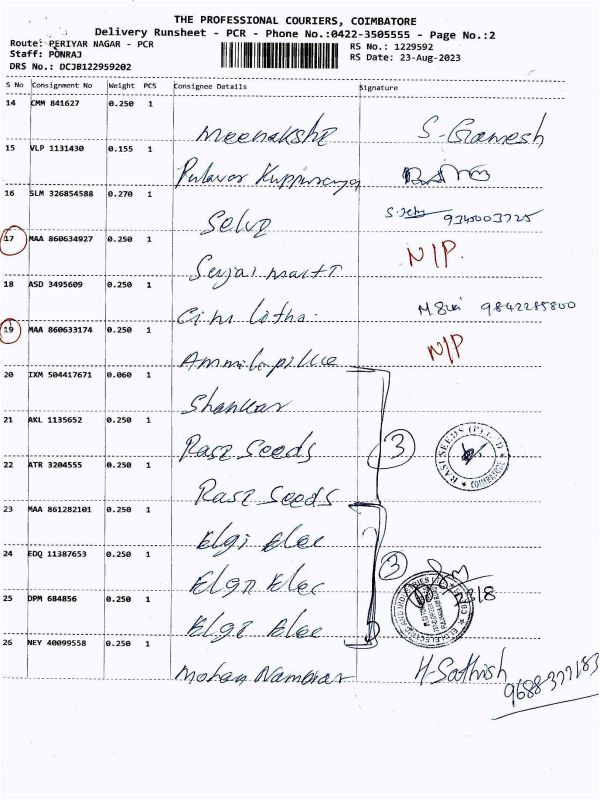 THE PROFESSIONAL COURIERS, COIMBATORE
Delivery Runsheet - PCR - Phone No.:0422-3505555 - Page No.:2
Route: PERIYAR NAGAR - PCR
Staff: PONRAJ
DRS No.: DCJB122959202
RS No.: 1229592
RS Date: 23-Aug-2023
S No Consignment No Weight PCS Consignee Details Signature
14 CMM 841627 0.250 1
Meenakshi S-Ganesh
15 VLP 1131430 0.155 1
Pulavar
16 SLM 326854588 0.270 1
Selva 9345003725
17 MAA 860634927 0.250 1
N/P.
18 ASD 3495609 0.250 1
latha 9842285800
19 MAA 860633174 0.250 1
N/P
20 IXM 504417671 0.060 1
Shankar
21 AKL 1135652 0.250 1
Rasi Seeds 3
RASI SEEDS (P) LTD
COIMBATORE
22 ATR 3204555 0.250 1
Rasi Seeds
23 MAA 861282101 0.250 1
Elgi Elec
24 EDQ 11387653 0.250 1
Elgi Elec 3
25 DPM 684856 0.250 1
Elgi Elec
26 NEY 40099558 0.250 1
Mohan H-Sathish
9688377183